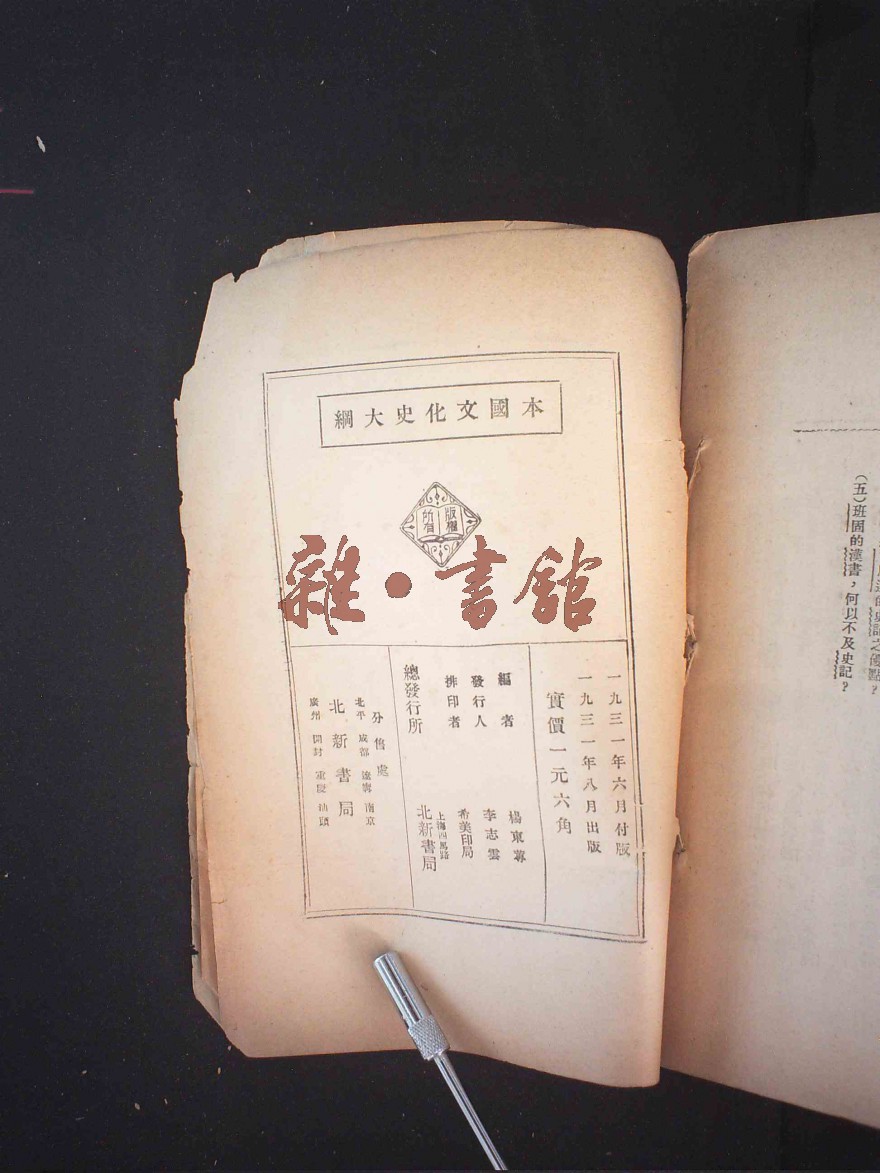 本國文化史大綱
版權
所有
雜·書館
一九三一年六月付版
一九三一年八月出版
實價一元六角
編者 楊東蓴
發行人 李志雲
排印者 希美印局
總發行所 上海四馬路 北新書局
分售處
北平 成都 遼寧 南京
北新書局
廣州 開封 重慶 汕頭
史記之優點?
(五)班固的漢書,何以不及史記?